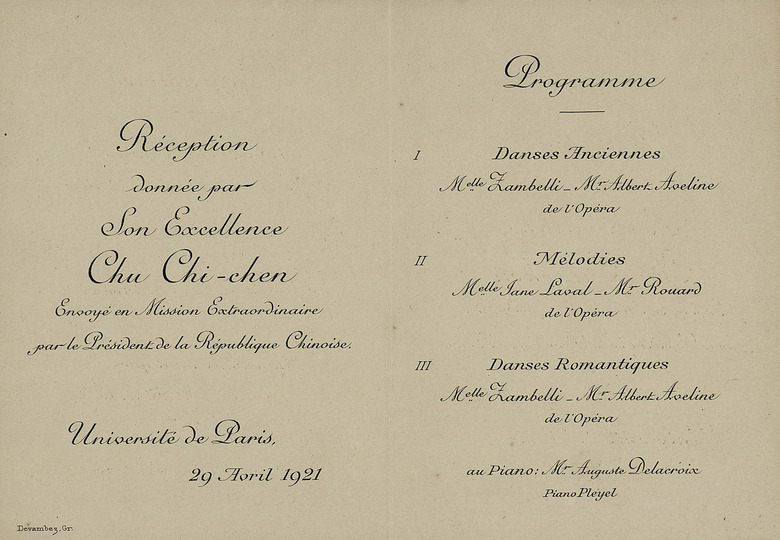 Réception
donnée par
Son Excellence
Chu Chi-chen
Envoyé en Mission Extraordinaire
par le Président de la République Chinoise.
Université de Paris,
29 Avril 1921
Devambez, Gr.
Programme
I Danses Anciennes
Melle Zambelli _ Mr Albert Aveline
de l'Opéra
II Mélodies
Melle Jane Laval _ Mr Rouard
de l'Opéra
III Danses Romantiques
Melle Zambelli _ Mr Albert Aveline
de l'Opéra
au Piano: Mr Auguste Delacroix
Piano Pleyel